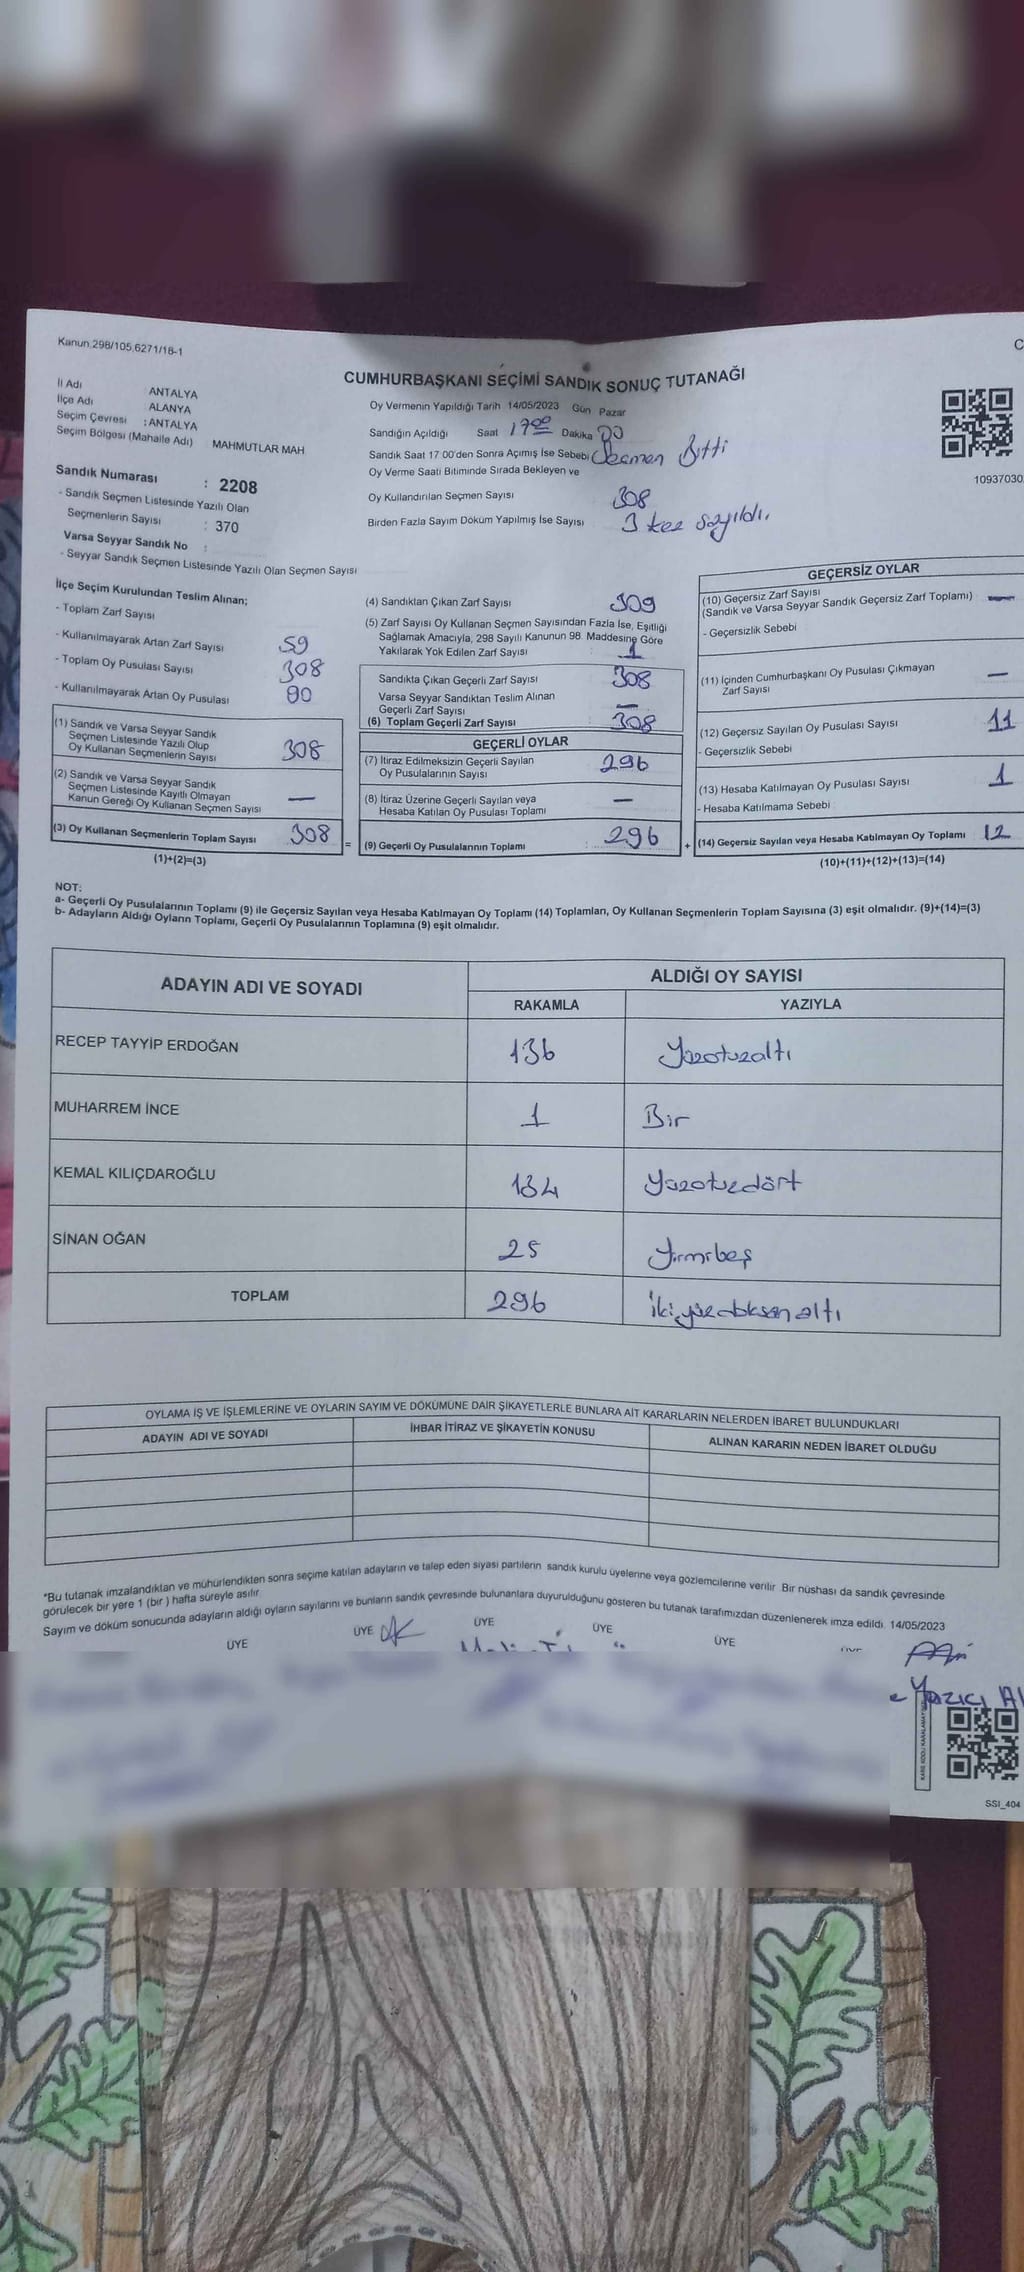 Kanun.298/105,6271/18-1
C
CUMHURBAŞKANI SEÇİMİ SANDIK SONUÇ TUTANAĞI
İl Adı ANTALYA
İlçe Adı ALANYA
Seçim Çevresi : ANTALYA
Seçim Bölgesi (Mahalle Adı) MAHMUTLAR MAH
Oy Vermenin Yapıldığı Tarih 14/05/2023 Gün Pazar
Sandığın Açıldığı Saat 17 00 Dakika 00
Sandık Saat 17 00'den Sonra Açımış İse Sebebi Seçmen Bitti
Oy Verme Saati Bitiminde Sırada Bekleyen ve
Oy Kullandırılan Seçmen Sayısı 308
Birden Fazla Sayım Döküm Yapılmış İse Sayısı 3 kez sayıldı.
10937030
Sandık Numarası : 2208
- Sandık Seçmen Listesinde Yazılı Olan
Seçmenlerin Sayısı : 370
Varsa Seyyar Sandık No :
- Seyyar Sandık Seçmen Listesinde Yazılı Olan Seçmen Sayısı
İlçe Seçim Kurulundan Teslim Alınan;
- Toplam Zarf Sayısı
- Kullanılmayarak Artan Zarf Sayısı 59
- Toplam Oy Pusulası Sayısı 308
- Kullanılmayarak Artan Oy Pusulası 90
(1) Sandık ve Varsa Seyyar Sandık
Seçmen Listesinde Yazılı Olup
Oy Kullanan Seçmenlerin Sayısı 308
(2) Sandık ve Varsa Seyyar Sandık
Seçmen Listesinde Kayıtlı Olmayan
Kanun Gereği Oy Kullanan Seçmen Sayısı —
(3) Oy Kullanan Seçmenlerin Toplam Sayısı 308 =
(1)+(2)=(3)
(4) Sandıktan Çıkan Zarf Sayısı 309
(5) Zarf Sayısı Oy Kullanan Seçmen Sayısından Fazla İse, Eşitliği
Sağlamak Amacıyla, 298 Sayılı Kanunun 98. Maddesine Göre
Yakılarak Yok Edilen Zarf Sayısı : 1
Sandıkta Çıkan Geçerli Zarf Sayısı 308
Varsa Seyyar Sandıktan Teslim Alınan
Geçerli Zarf Sayısı —
(6) Toplam Geçerli Zarf Sayısı 308
GEÇERLİ OYLAR
(7) İtiraz Edilmeksizin Geçerli Sayılan
Oy Pusulalarının Sayısı 296
(8) İtiraz Üzerine Geçerli Sayılan veya
Hesaba Katılan Oy Pusulası Toplamı —
(9) Geçerli Oy Pusulalarının Toplamı 296 +
GEÇERSİZ OYLAR
(10) Geçersiz Zarf Sayısı
(Sandık ve Varsa Seyyar Sandık Geçersiz Zarf Toplamı) —
- Geçersizlik Sebebi
(11) İçinden Cumhurbaşkanı Oy Pusulası Çıkmayan
Zarf Sayısı —
(12) Geçersiz Sayılan Oy Pusulası Sayısı 11
- Geçersizlik Sebebi
(13) Hesaba Katılmayan Oy Pusulası Sayısı 1
- Hesaba Katılmama Sebebi
(14) Geçersiz Sayılan veya Hesaba Katılmayan Oy Toplamı 12
(10)+(11)+(12)+(13)=(14)
NOT:
a- Geçerli Oy Pusulalarının Toplamı (9) ile Geçersiz Sayılan veya Hesaba Katılmayan Oy Toplamı (14) Toplamları, Oy Kullanan Seçmenlerin Toplam Sayısına (3) eşit olmalıdır. (9)+(14)=(3)
b- Adayların Aldığı Oyların Toplamı, Geçerli Oy Pusulalarının Toplamına (9) eşit olmalıdır.
ADAYIN ADI VE SOYADI ALDIĞI OY SAYISI
RAKAMLA YAZIYLA
RECEP TAYYİP ERDOĞAN 136 Yüzotuzaltı
MUHARREM İNCE 1 Bir
KEMAL KILIÇDAROĞLU 134 Yüzotuzdört
SİNAN OĞAN 25 Yirmibeş
TOPLAM 296 İkiyüzdoksanaltı
OYLAMA İŞ VE İŞLEMLERİNE VE OYLARIN SAYIM VE DÖKÜMÜNE DAİR ŞİKAYETLERLE BUNLARA AİT KARARLARIN NELERDEN İBARET BULUNDUKLARI
ADAYIN ADI VE SOYADI İHBAR İTİRAZ VE ŞİKAYETİN KONUSU ALINAN KARARIN NEDEN İBARET OLDUĞU
*Bu tutanak imzalandıktan ve mühürlendikten sonra seçime katılan adayların ve talep eden siyasi partilerin sandık kurulu üyelerine veya gözlemcilerine verilir. Bir nüshası da sandık çevresinde
görülecek bir yere 1 (bir ) hafta süreyle asılır.
Sayım ve döküm sonucunda adayların aldığı oyların sayılarını ve bunların sandık çevresinde bulunanlara duyurulduğunu gösteren bu tutanak tarafımızdan düzenlenerek imza edildi. 14/05/2023
ÜYE ÜYE ÜYE ÜYE ÜYE
Yazıcı
KARE KODU KARALAMAYINIZ
SSI_404